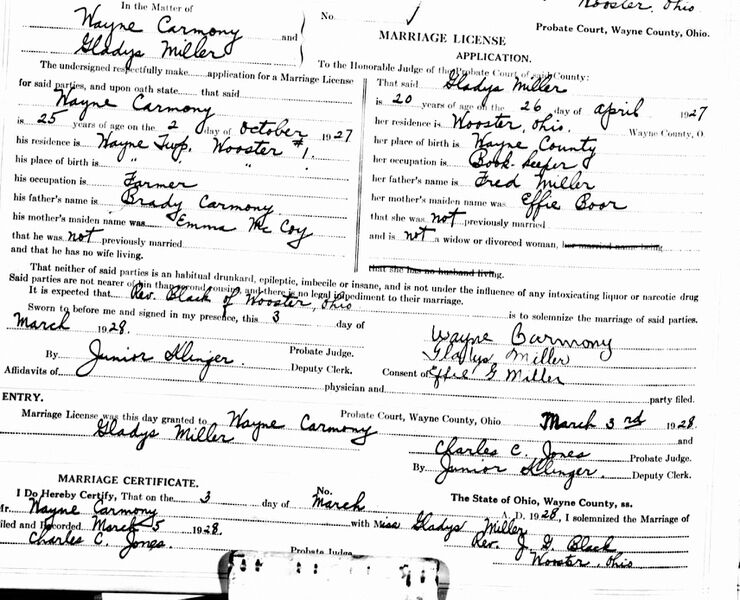 In the Matter of
Wayne Carmony
and
Gladys Miller
No.
Wooster, Ohio
Probate Court, Wayne County, Ohio.
MARRIAGE LICENSE
APPLICATION.
To the Honorable Judge of the Probate Court of said County:
The undersigned respectfully make application for a Marriage License
for said parties, and upon oath state that said
Wayne Carmony
is 25 years of age on the 2 day of October 1927
his residence is Wayne Twp. Wooster #1.
his place of birth is " " "
his occupation is Farmer
his father's name is Brady Carmony
his mother's maiden name was Emma McCoy
that he was not previously married
and that he has no wife living.
That said Gladys Miller
is 20 years of age on the 26 day of April 1927
her residence is Wooster, Ohio. Wayne County, O
her place of birth is Wayne County
her occupation is Book-keeper
her father's name is Fred Miller
her mother's maiden name was Effie Boor
that she was not previously married
and is not a widow or divorced woman, her married name being
that she has no husband living.
That neither of said parties is an habitual drunkard, epileptic, imbecile or insane, and is not under the influence of any intoxicating liquor or narcotic drug
Said parties are not nearer of kin than second cousins, and there is no legal impediment to their marriage.
It is expected that Rev. Black of Wooster, Ohio is to solemnize the marriage of said parties.
Sworn to before me and signed in my presence, this 3 day of
March 1928.
Wayne Carmony
Gladys Miller
Probate Judge.
By Junior Slinger. Deputy Clerk.
Consent of Effie G Miller
Affidavits of physician and party filed.
ENTRY.
Probate Court, Wayne County, Ohio March 3rd 1928.
Marriage License was this day granted to Wayne Carmony and
Gladys Miller
Charles C. Jones Probate Judge.
By Junior Slinger. Deputy Clerk.
MARRIAGE CERTIFICATE.
No.
The State of Ohio, Wayne County, ss.
I Do Hereby Certify, That on the 3 day of March A. D. 1928, I solemnized the Marriage of
Mr. Wayne Carmony with Miss Gladys Miller
Filed and Recorded March 5 1928.
Rev. J. G. Black
Charles C. Jones. Probate Judge
Wooster, Ohio